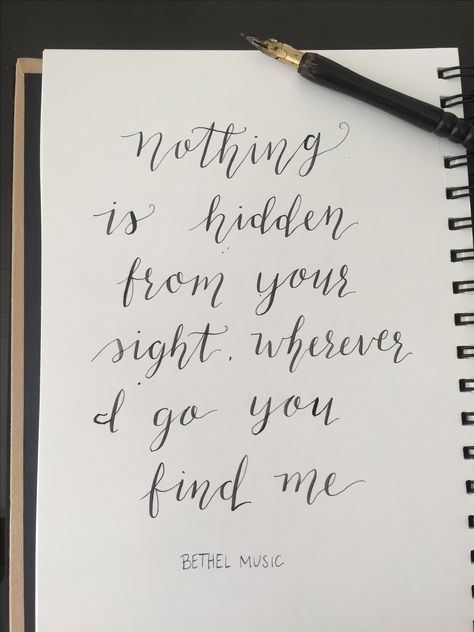 nothing
is hidden
from your
sight. wherever
I go you
find me
BETHEL MUSIC